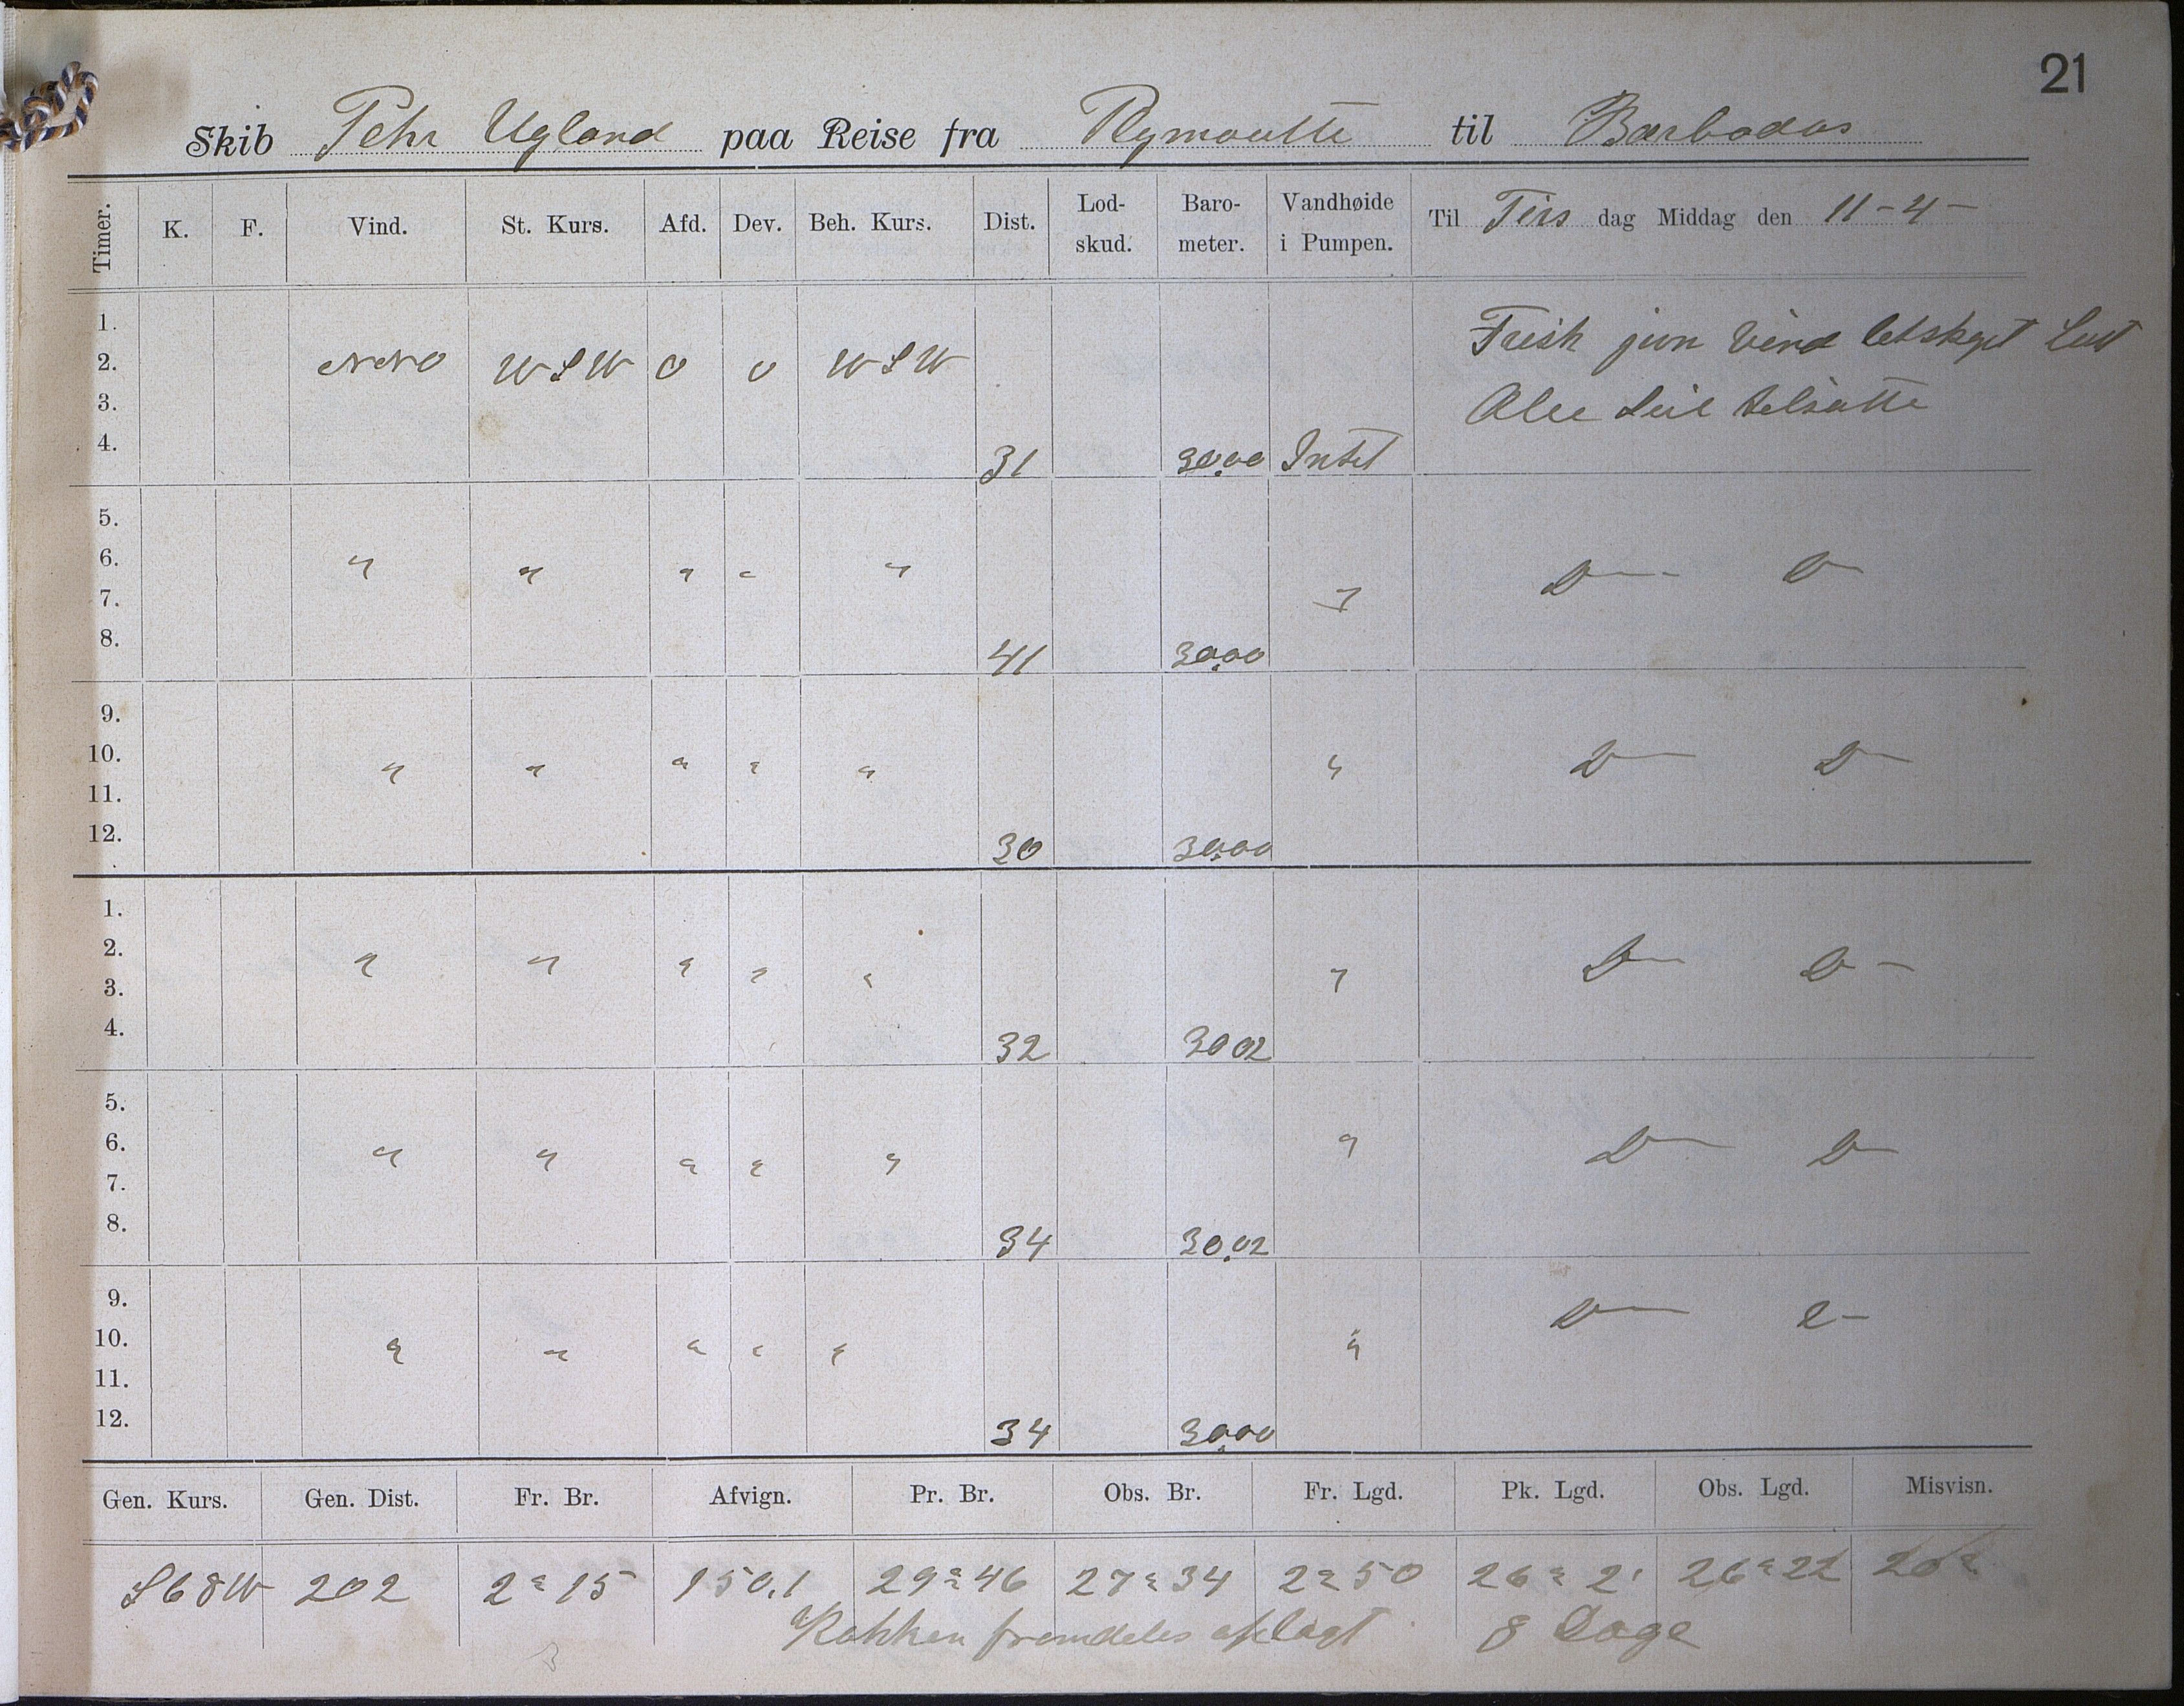 21
Skib Pehr Ugland paa Reise fra Plymouth til Barbados
Timer. K. F. Vind. St. Kurs. Afd. Dev. Beh. Kurs. Dist. Lod-skud. Baro-meter. Vandhøide i Pumpen. Til Tirs dag Middag den 11-4-
1. Frisk jevn Vind letskyet Luft
2. NNO WSW 0 0 WSW
3. Alle Seil tilsatte
4. 31 30.00 Intet
5.
6. " " " " " D— D—
7. "
8. 41 30.00
9.
10. " " " " " " D— D—
11.
12. 30 30.00
1.
2. " " " " " " D— D—
3.
4. 32 30 02
5.
6. " " " " " " D— D—
7.
8. 34 30.02
9. D— D—
10. " " " " " "
11.
12. 34 30.00
Gen. Kurs. Gen. Dist. Fr. Br. Afvign. Pr. Br. Obs. Br. Fr. Lgd. Pk. Lgd. Obs. Lgd. Misvisn.
S68W 202 2° 15 150.1 29° 46 27° 34 2° 50 26° 2' 26° 22 20°
Kokken fremdeles aflagt 8 Dage